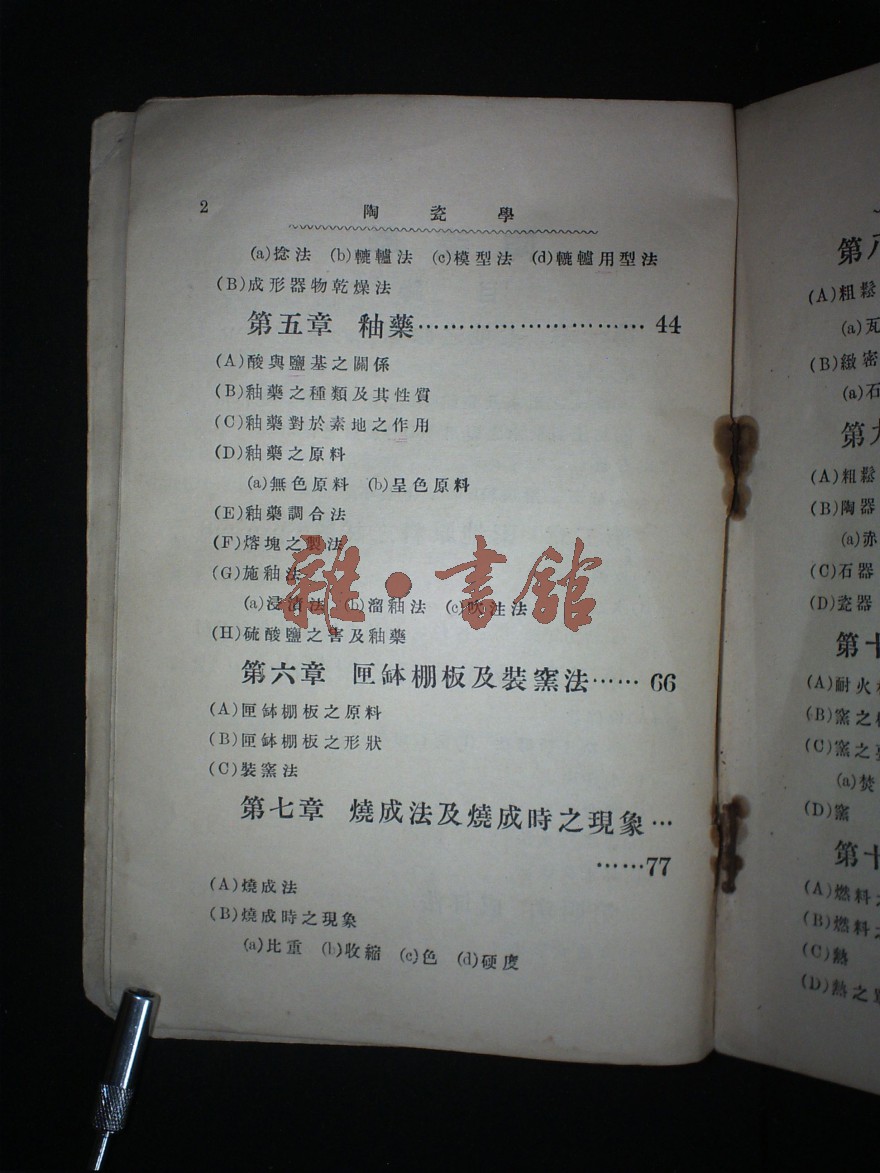 2
陶瓷學
(a)捻法 (b)轆轤法 (c)模型法 (d)轆轤用型法
(B)成形器物乾燥法
第五章 釉藥………………………44
(A)酸與鹽基之關係
(B)釉藥之種類及其性質
(C)釉藥對於素地之作用
(D)釉藥之原料
(a)無色原料 (b)呈色原料
(E)釉藥調合法
(F)熔塊之製法
(G)施釉法
(a)浸漬法 (b)溜釉法 (c)吹注法
(H)硫酸鹽之害及釉藥
第六章 匣缽棚板及裝窯法……66
(A)匣缽棚板之原料
(B)匣缽棚板之形狀
(C)裝窯法
第七章 燒成法及燒成時之現象…
……77
(A)燒成法
(B)燒成時之現象
(a)比重 (b)收縮 (c)色 (d)硬度
雜·書館
第八
(A)粗鬆
(a)瓦
(B)緻密
(a)石
第九
(A)粗鬆
(B)陶器
(a)赤
(C)石器
(D)瓷器
第十
(A)耐火
(B)窯之
(C)窯之
(a)焚
(D)窯
第十
(A)燃料之
(B)燃料之
(C)熱
(D)熱之